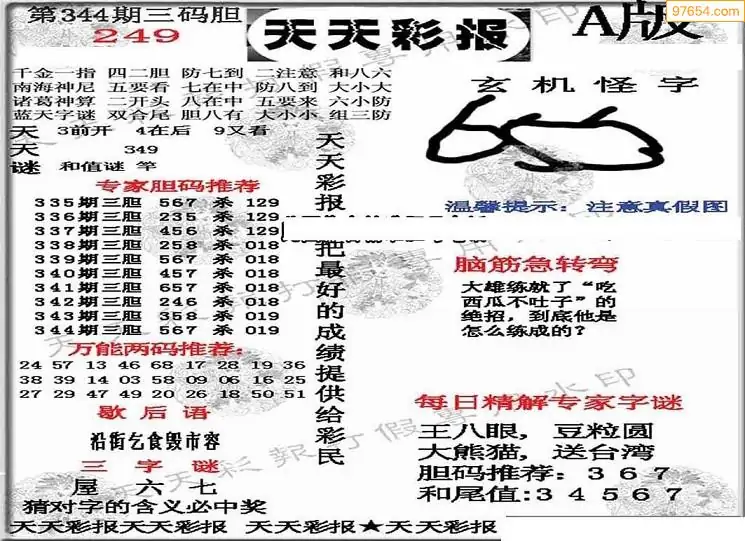 第344期三码胆
249
天天彩报
A版
97654.com
千金一指 四二胆 防七到 二注意 和八六
南海神尼 五要看 七在中 防八到 大小大
诸葛神算 二开头 八在中 五要来 六小防
蓝天字谜 双合尾 胆八有 大小小 组三防
天 3前开 4在后 9又看
天 349
谜 和值谜 竿
专家胆码推荐
335期三胆 567 杀 129
336期三胆 235 杀 129
337期三胆 456 杀 129
338期三胆 258 杀 018
339期三胆 560 杀 018
340期三胆 457 杀 018
341期三胆 657 杀 018
342期三胆 246 杀 018
343期三胆 358 杀 019
344期三胆 567 杀 019
万能两码推荐:
24 57 13 46 68 17 28 19 36
38 39 14 03 58 09 06 16 25
27 29 47 49 20 26 18 50 51
歇后语
沿街乞食毁市容
三字谜
屋 六 七
猜对字的含义必中奖
天天彩报
把最好的成绩提供给彩民
玄机怪字
温馨提示: 注意真假图
脑筋急转弯
大雄练就了“吃
西瓜不吐子”的
绝招,到底他是
怎么练成的?
每日精解专家字谜
王八眼,豆粒圆
大熊猫,送台湾
胆码推荐: 3 6 7
和尾值:3 4 5 6 7
天天彩报天天彩报 天天彩报★天天彩报